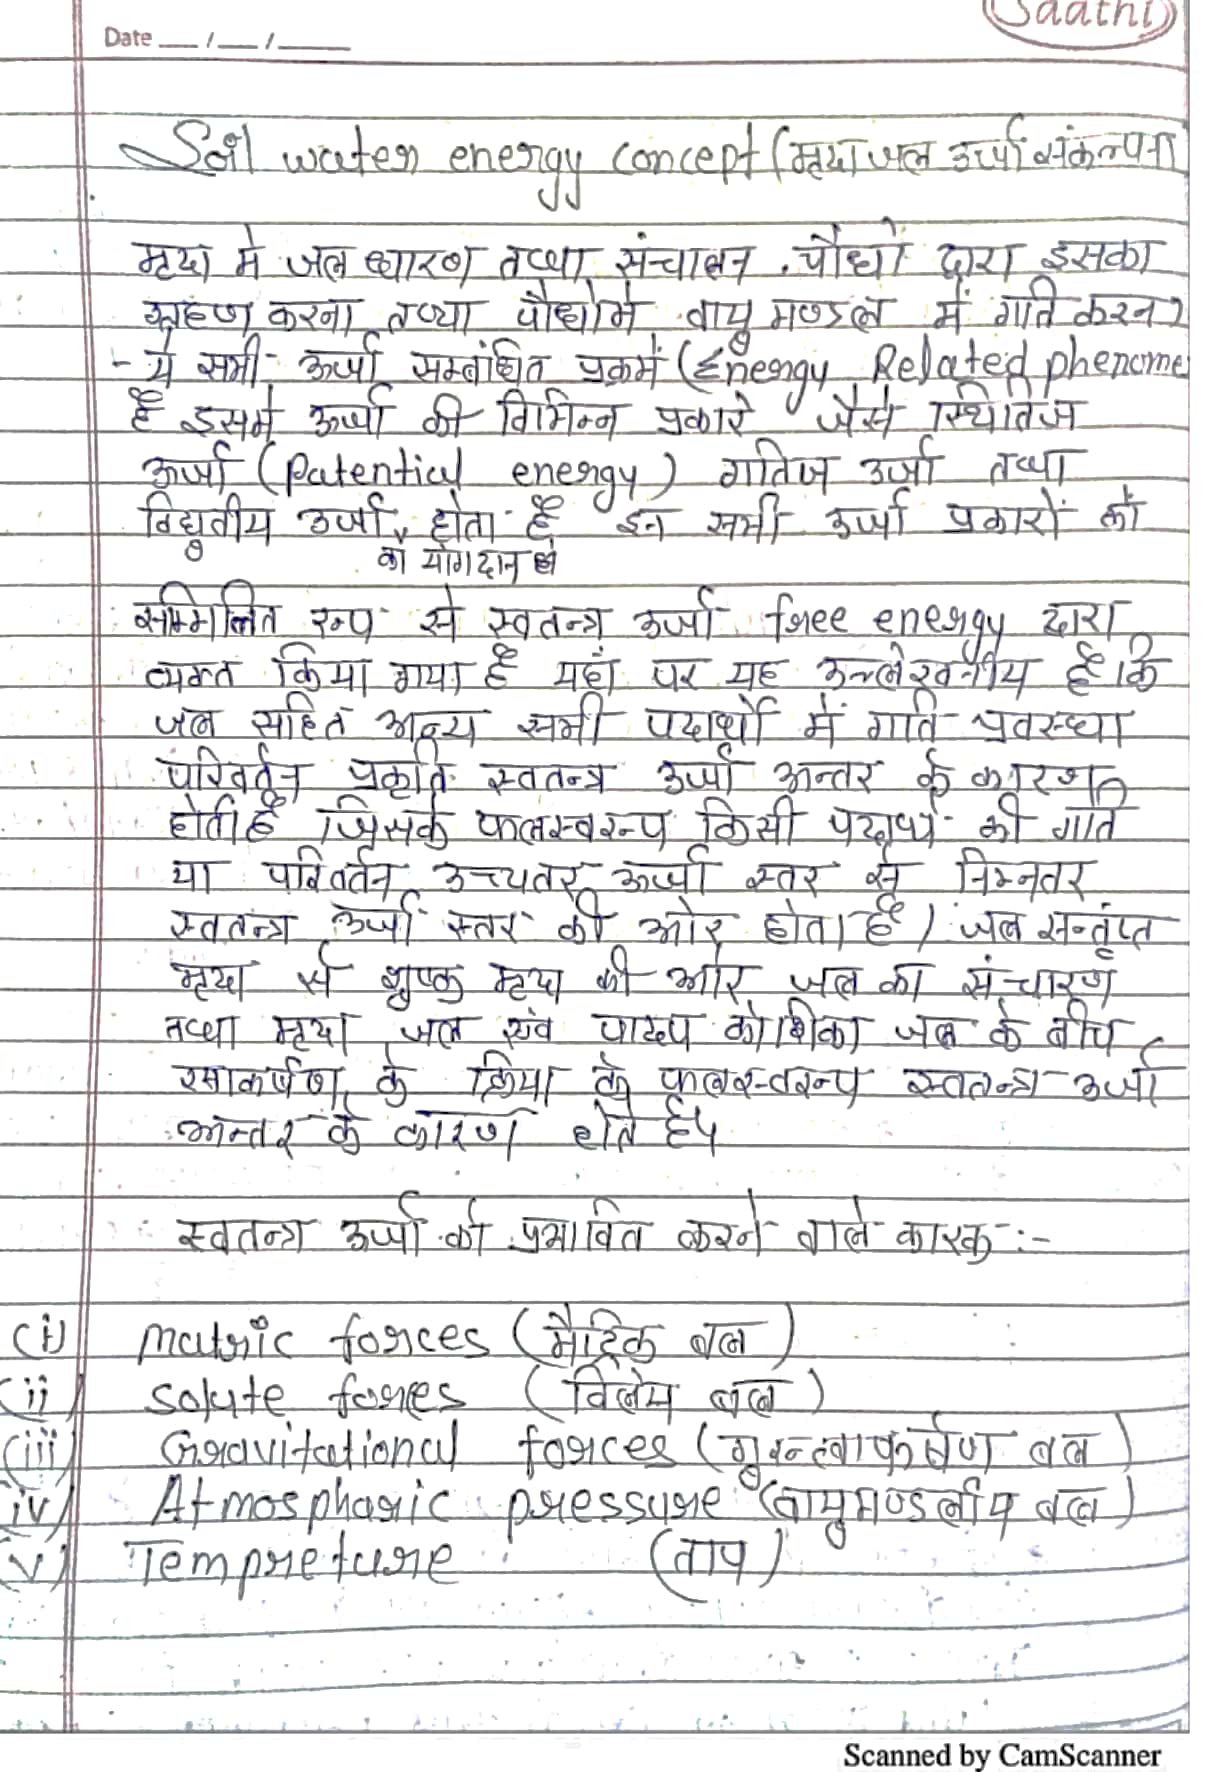 Saathi
Date __/__/____
Soil water energy concept (मृदा जल उर्जा संकल्पना
मृदा मे जल धारण तथा संचालन, पौधो द्वारा इसका
ग्रहण करना तथा पौधोमे वायु मण्डल में गति करना
- ये सभी ऊर्जा सम्बंधित प्रकमें (Energy Related phenome
है इसमे ऊर्जा की विभिन्न प्रकारे जैसे स्थितिज
ऊर्जा (Patential energy) गतिज उर्जा तथा
विद्युतीय उर्जा होता है इन सभी उर्जा प्रकारों को
का योगदान हो
सम्मिलित रूप से स्वतन्त्र ऊर्जा free energy द्वारा
व्यक्त किया गया है यहां पर यह उल्लेखनीय है कि
जल सहित अन्य सभी पदार्थो में गति प्रवस्था
परिवर्तन प्रकृति स्वतन्त्र उर्जा अन्तर के कारण
होती है जिसके फलस्वरूप किसी पदार्थ की गति
या परिवर्तन उच्चतर ऊर्जा स्तर से निम्नतर
स्वतन्त्र ऊर्जा स्तर की ओर होता है / जल सन्तृप्त
मृदा से शुष्क मृदा की ओर जल का संचारण
तथा मृदा जल एंव पादप कोशिका जल के बीच
रसाकर्षण के क्रिया के फलस्वरूप स्वतन्त्र उर्जा
अन्तर के कारण होते है।
स्वतन्त्र ऊर्जा को प्रभावित करने वाले कारक :-
(i) matric forces (मैट्रिक बल)
(ii) solute forces (विलेय बल)
(iii) Gravitational forces (गुरूत्वाकर्षण बल)
iv) Atmospharic pressure (वायुमण्डलीय बल)
v) Tempreture (ताप)
Scanned by CamScanner